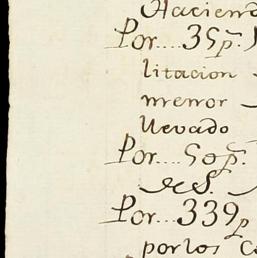 Haciend
Por... 35 p.
litacion
menor
llevado
Por... 50 p.
de S.
Por... 339 p
por los